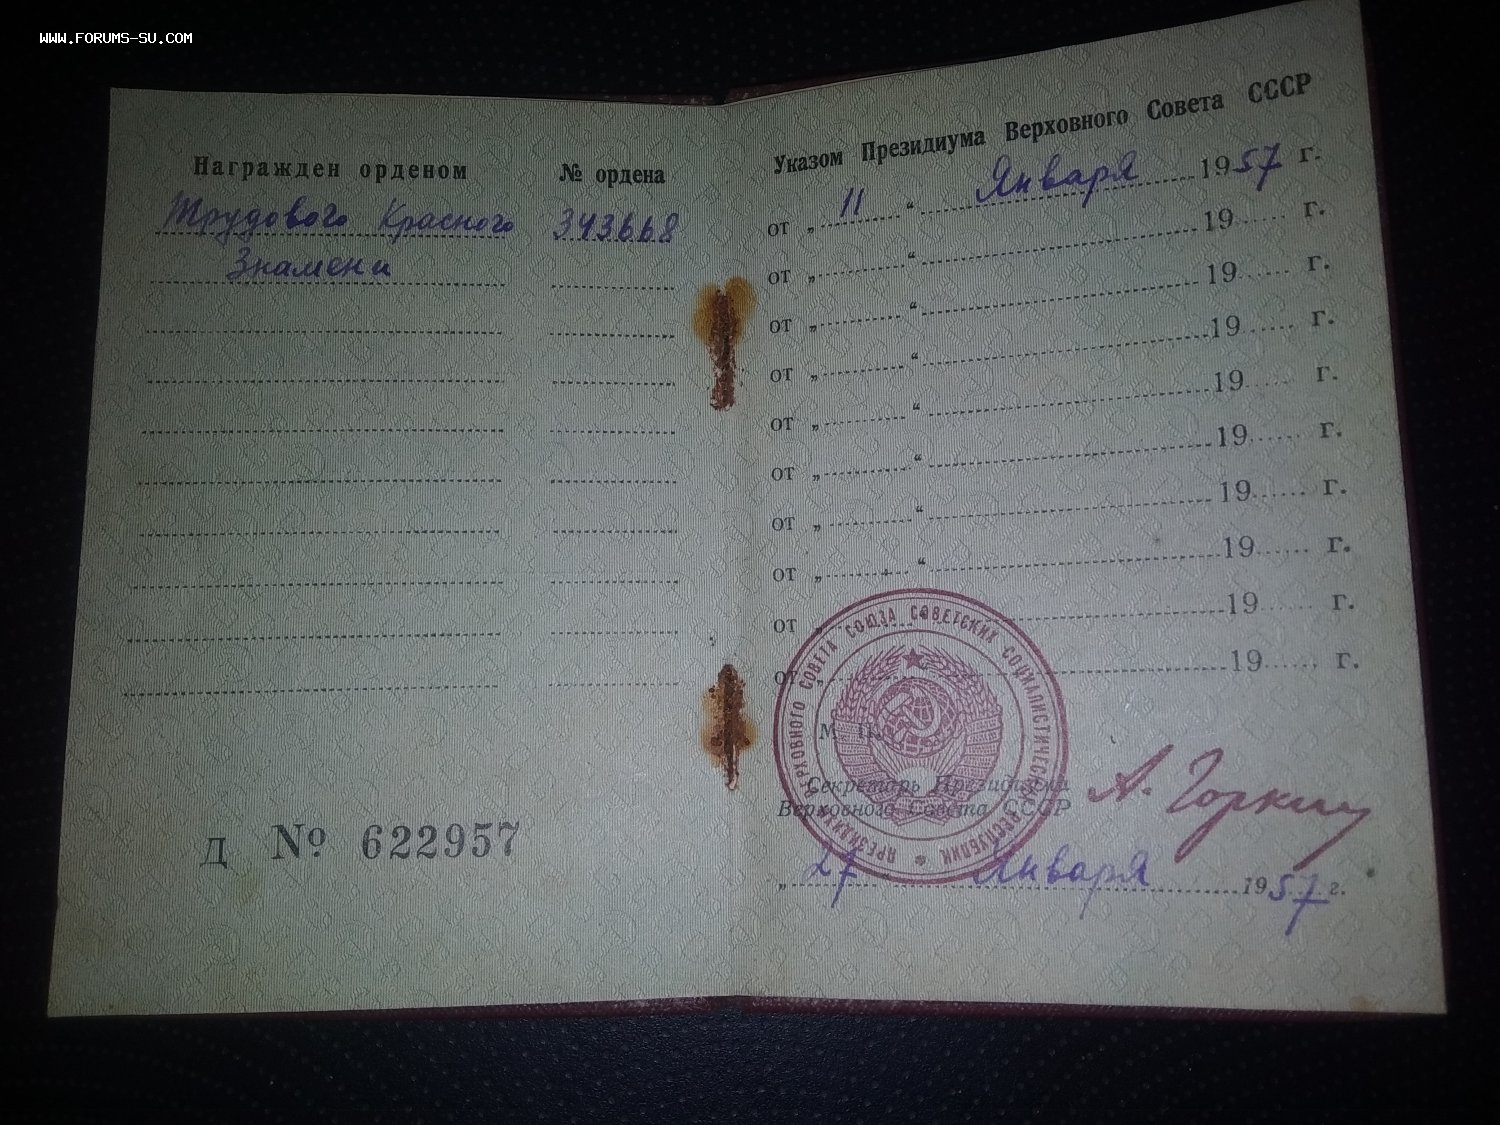 WWW.FORUMS-SU.COM
Награжден орденом № ордена
Трудового Красного 343668
Знамени
Д № 622957
Указом Президиума Верховного Совета СССР
от „ 11 “ Января 1957 г.
от „ “ 19 г.
от „ “ 19 г.
от „ “ 19 г.
от „ “ 19 г.
от „ “ 19 г.
от „ “ 19 г.
от „ “ 19 г.
от „ 19 г.
от 19 г.
ПРЕЗИДИУМ ВЕРХОВНОГО СОВЕТА СОЮЗА СОВЕТСКИХ СОЦИАЛИСТИЧЕСКИХ РЕСПУБЛИК
М. П.
Секретарь Президиума
Верховного Совета СССР
А. Горкин
„ 27 Января 1957 г.